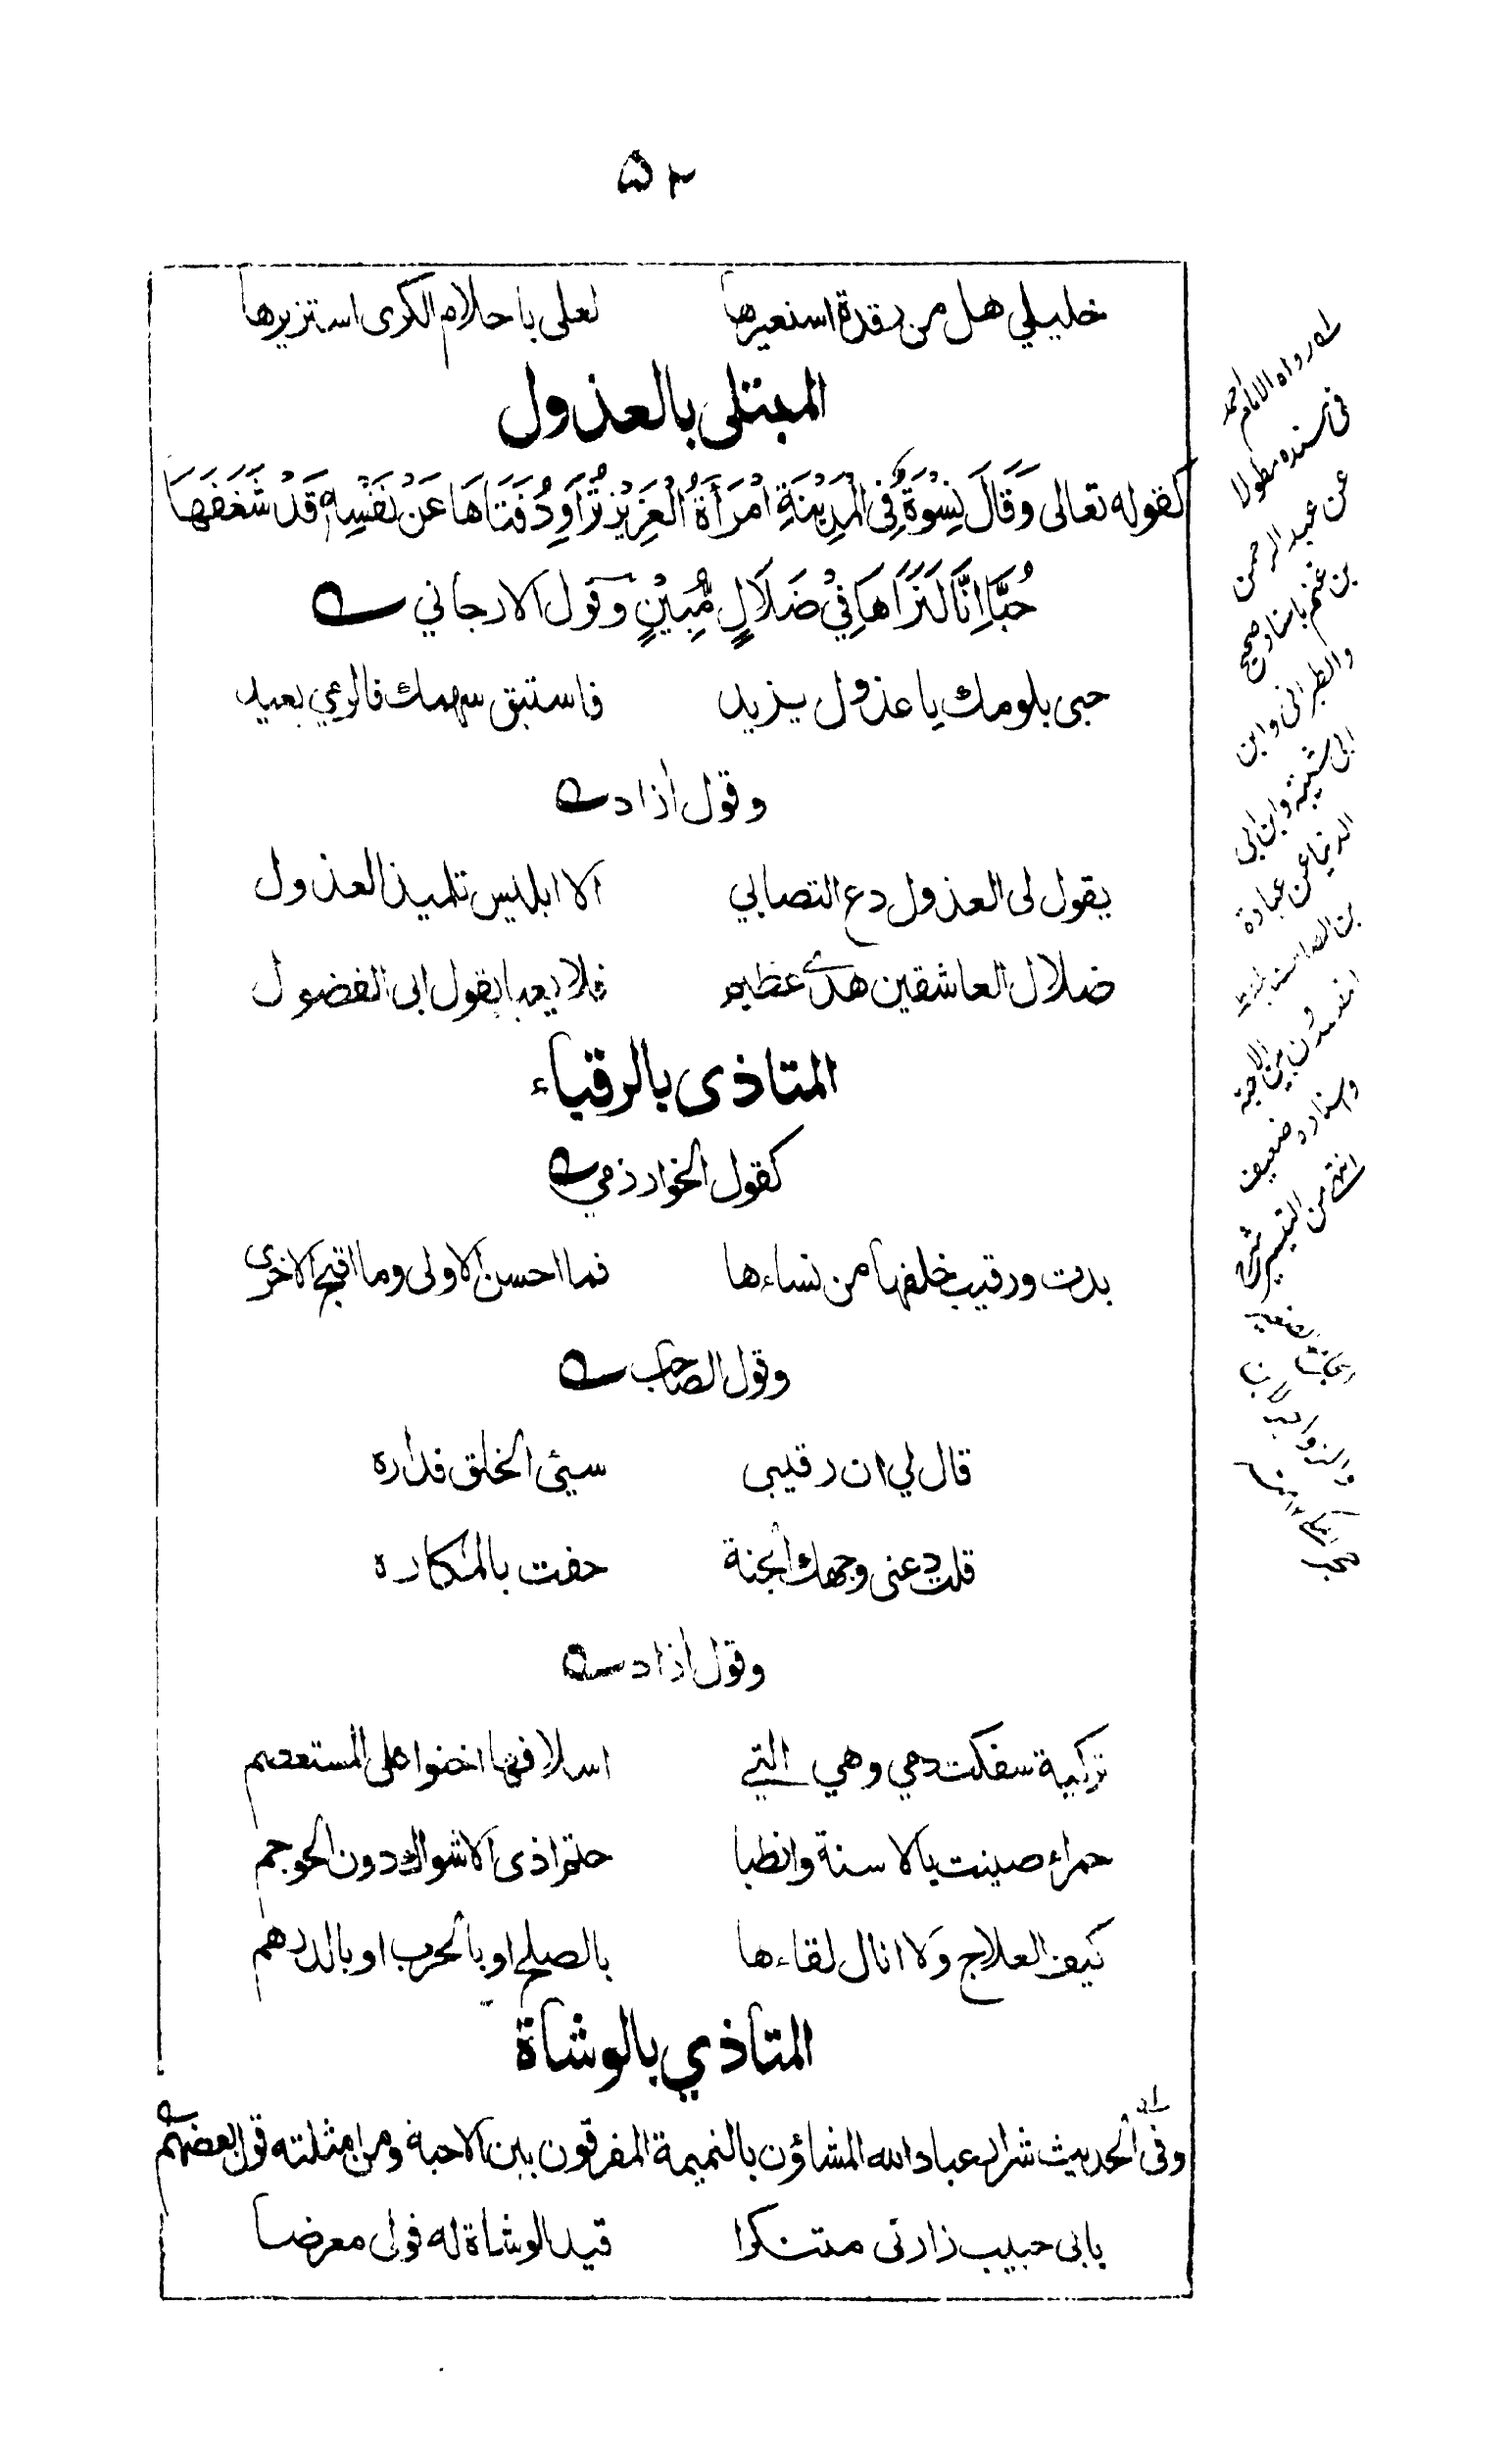 ۵۲
خليلي هل من رقدة استعيرها لعلى باحلام الكرى استزيرها
المبتلى بالعذول
كقوله تعالى وَقَالَ نِسْوَةٌ فِي الْمَدِيْنَةِ امْرَأَةُ الْعَزِيْزِ تُرَاوِدُ فَتَاهَا عَنْ نَفْسِهٖ قَدْ شَغَفَهَا
حُبًّا اِنَّا لَنَرَاهَا فِيْ ضَلَالٍ مُّبِيْنٍ وقول الارجاني
حبى بلومك يا عذول يزيد فاستبق سهمك فالرمي بعيد
وقول اٰزاد
يقول لى العذول دع التصابي الا ابليس تلميذ العذول
ضلال العاشقين هدى عظيم فلا يعبا بقول ابى الفضول
المتاذى بالرقباء
كقول الخوارزمي
بدت ورقيب خلفها من نساءها فما احسن الاولى وما اقبح الاخرى
وقول الصاحب
قال لي ان رقيبى سيئ الخلق فداره
قلت دعنى وجهك الجنة حفت بالمكاره
وقول اٰزاد
تركية سفكت دمي وهي التي اسلافها اخنوا على المستعصم
حمراء صينت بالاسنة والظبا حتم اذى الاشواك دون الحوجم
كيف العلاج ولا انال لقاءها بالصلح او بالحرب او بالدرهم
المتاذي بالوشاة
وفى الحديث شرار عباد الله المشاؤن بالنميمة المفرقون بين الاحبة ومن امثلته قول بعضهم
بابى حبيب زارنى متنكرا فبد الوشاة له فولى معرضا
رواه الامام احمد
في مسنده مطولا
عن عبد الرحمن
بن غنم باسناد صحيح
والطبرانى وابن
ابي شيبة وابن ابي
الدنيا عن عبادة
بن الصامت بلفظ
المفسدون بين الاحبة
واسناده ضعيف
انتهى من التيسير شرح